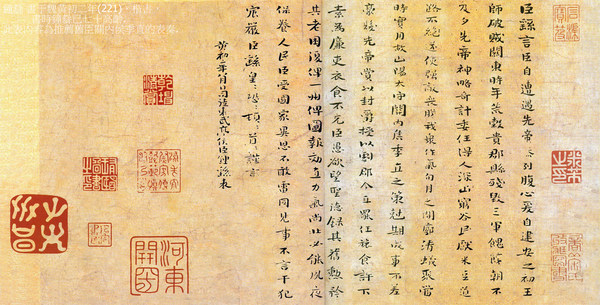 鍾繇 書于魏黃初二年(221)，楷書。
書時鍾繇已七十高齡。
此表內容為推薦舊臣關內侯季直的表奏。
臣繇言臣自遭遇先帝忝列腹心爰自建安之初王
師破賊關東時年荒穀貴郡縣殘毀三軍餽饟朝不
及夕先帝神略奇計委任得人深山窮谷民獻米豆道
路不絕遂使強敵喪膽我眾作氣旬月之間廓清蟻聚當
時實用故山陽太守關內侯季直之策剋期成事不差
豪髮先帝賞以封爵授以劇郡今直罷任旅食許下
素為廉吏衣食不充臣愚欲望聖德錄其舊勳矜
其老困復俾一州俾圖報效直力氣尚壯必能夙夜
保養人民臣受國家異恩不敢雷同見事不言干犯
宸嚴臣繇皇〻恐〻頓〻首〻謹言
黃初二年八月日司徒東武亭侯臣鍾繇表
河東
開國